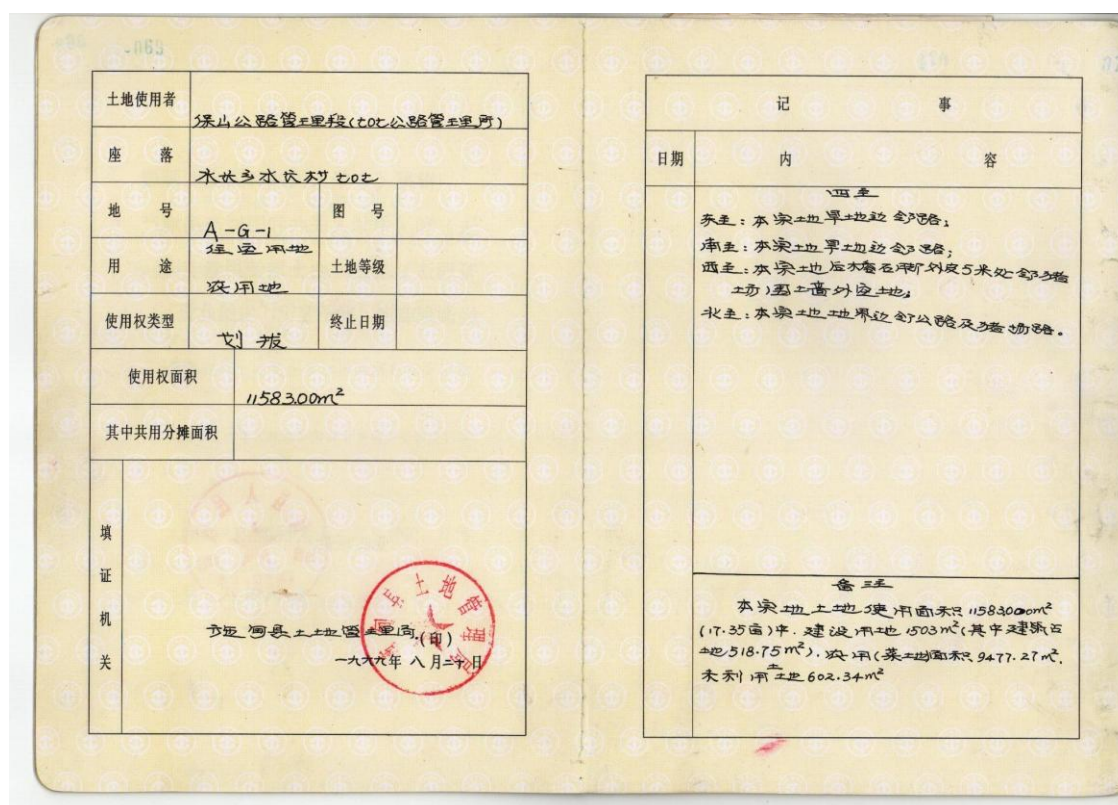 土地使用者 保山公路管理段(七0七公路管理所)
座落 水长乡水长村七0七
地号 A-G-1 图号
用途 住宅用地 农用地 土地等级
使用权类型 划拨 终止日期
使用权面积 11583.00m²
其中共用分摊面积
填证机关
施甸县土地管理局(印)
一九九九年八月二十日
记事
日期 内容
四至
东至：本宗地旱地边邻路；
南至：本宗地旱地边邻路；
西至：本宗地后檐石脚外皮5米处邻猪
场)围土墙外空地；
北至：本宗地地界边邻公路及猪场路。
备注
本宗地土地使用面积11583000m²
(17.35亩)中.建设用地1503m²(其中建筑占
地1518.75m²).农用(菜土地面积9477.27m².
未利用土地602.34m²